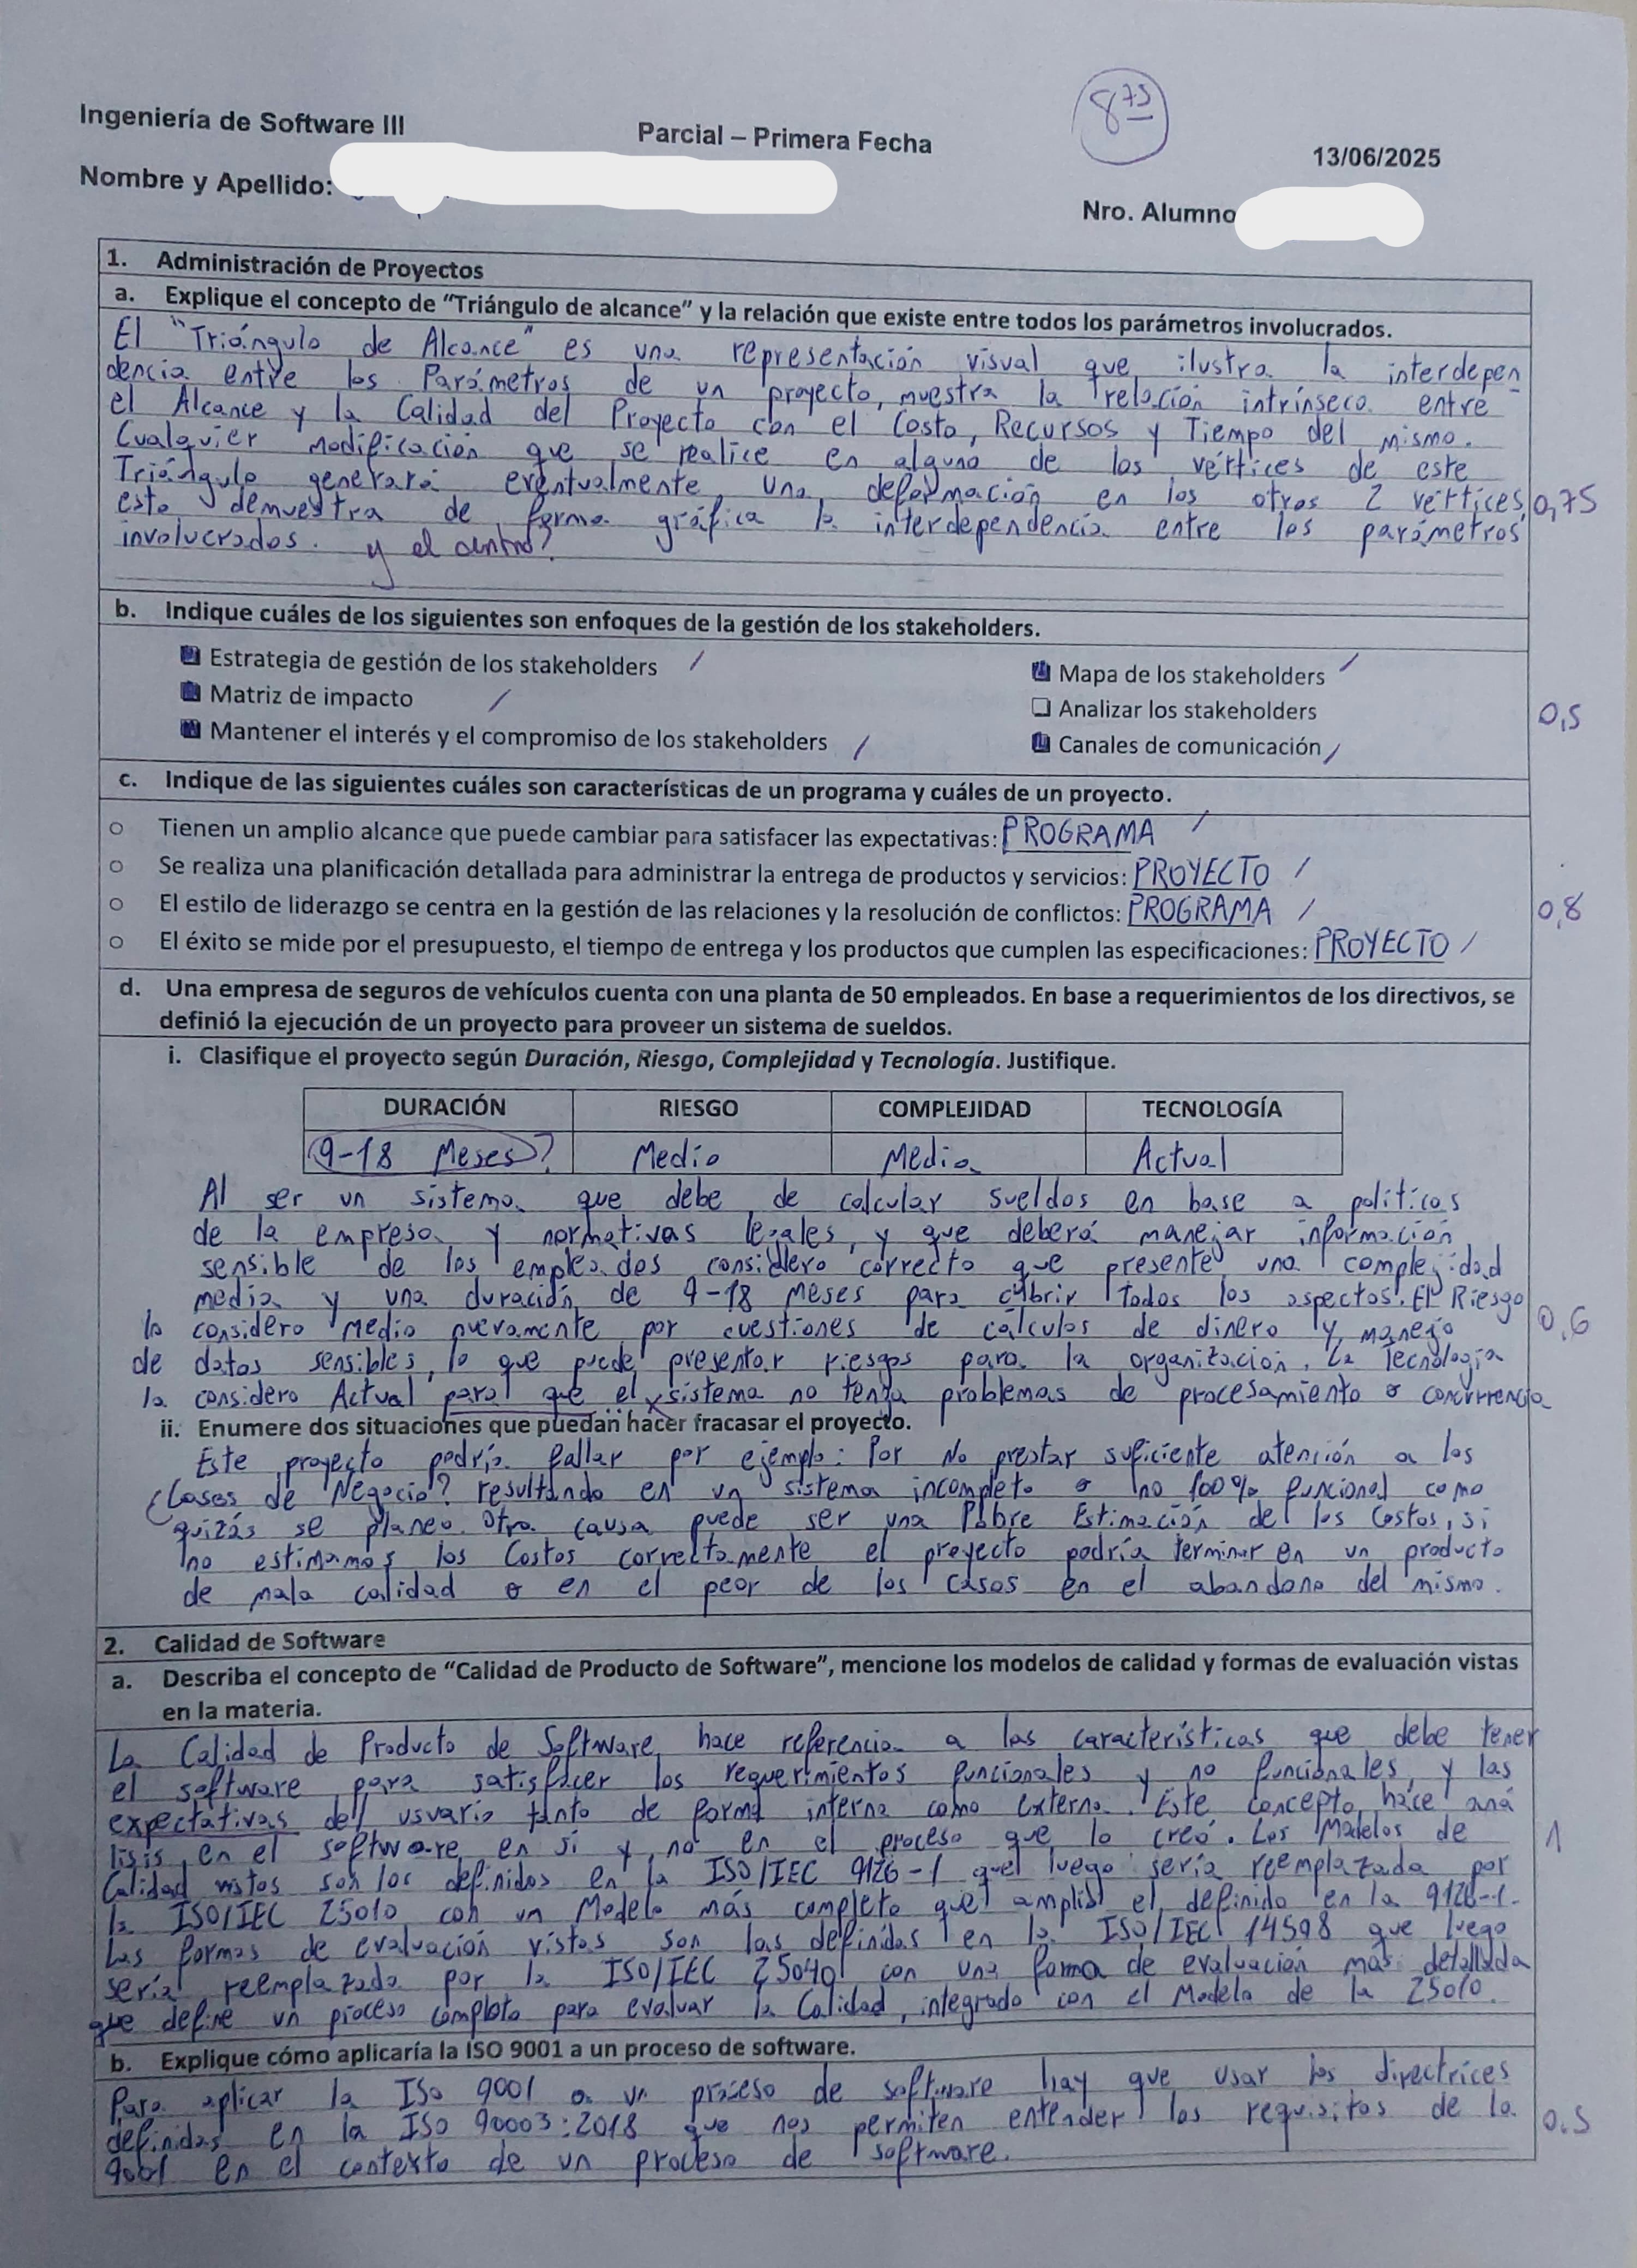 8 75
Ingeniería de Software III
Parcial – Primera Fecha
13/06/2025
Nombre y Apellido:
Nro. Alumno
1. Administración de Proyectos
a. Explique el concepto de “Triángulo de alcance” y la relación que existe entre todos los parámetros involucrados.
El "Triángulo de Alcance" es una representación visual que ilustra la interdepen
dencia entre los Parámetros de un proyecto, muestra la relación intrínseca entre
el Alcance y la Calidad del Proyecto con el Costo, Recursos y Tiempo del mismo.
Cualquier modificación que se realice en alguno de los vértices de este
Triángulo generará eventualmente, una deformación en los otros 2 vértices,
esto demuestra de forma gráfica la interdependencia entre los parámetros
involucrados. y el centro?
0,75
b. Indique cuáles de los siguientes son enfoques de la gestión de los stakeholders.
Estrategia de gestión de los stakeholders
Mapa de los stakeholders
Matriz de impacto
Analizar los stakeholders
Mantener el interés y el compromiso de los stakeholders
Canales de comunicación
0,5
c. Indique de las siguientes cuáles son características de un programa y cuáles de un proyecto.
Tienen un amplio alcance que puede cambiar para satisfacer las expectativas: PROGRAMA
Se realiza una planificación detallada para administrar la entrega de productos y servicios: PROYECTO
El estilo de liderazgo se centra en la gestión de las relaciones y la resolución de conflictos: PROGRAMA
El éxito se mide por el presupuesto, el tiempo de entrega y los productos que cumplen las especificaciones: PROYECTO
0,8
d. Una empresa de seguros de vehículos cuenta con una planta de 50 empleados. En base a requerimientos de los directivos, se
definió la ejecución de un proyecto para proveer un sistema de sueldos.
i. Clasifique el proyecto según Duración, Riesgo, Complejidad y Tecnología. Justifique.
DURACIÓN RIESGO COMPLEJIDAD TECNOLOGÍA
9-18 Meses? Medio Media Actual
Al ser un sistema que debe de calcular sueldos en base a políticas
de la empresa y normativas legales, y que deberá manejar información
sensible de los empleados considero correcto que presente una complejidad
media y una duración de 9-18 meses para cubrir todos los aspectos. El Riesgo
lo considero Medio nuevamente por cuestiones de cálculos de dinero y manejo
de datos sensibles, lo que puede presentar riesgos para la organización. La Tecnología
la considero Actual para que el sistema no tenga problemas de procesamiento o concurrencia
0,6
ii. Enumere dos situaciones que puedan hacer fracasar el proyecto.
Este proyecto podría fallar por ejemplo: Por No prestar suficiente atención a los
Casos de Negocio? resultando en un sistema incompleto o no 100% funcional como
quizás se planeo. Otra causa puede ser una Pobre Estimación de los Costos, si
no estimamos los Costos correctamente el proyecto podría terminar en un producto
de mala calidad o en el peor de los casos en el abandono del mismo.
2. Calidad de Software
a. Describa el concepto de “Calidad de Producto de Software”, mencione los modelos de calidad y formas de evaluación vistas
en la materia.
La Calidad de Producto de Software hace referencia a las características que debe tener
el software para satisfacer los requerimientos funcionales y no funcionales, y las
expectativas del usuario tanto de forma interna como externa. Este concepto hace aná
lisis en el software en si y no en el proceso que lo creó. Los Modelos de
Calidad vistos son los definidos en la ISO/IEC 9126-1 que luego sería reemplazada por
la ISO/IEC 25010 con un Modelo más completo que amplía el definido en la 9126-1.
Las formas de evaluación vistas son las definidas en la ISO/IEC 14598 que luego
sería reemplazada por la ISO/IEC 25040 con una forma de evaluación más detallada
que define un proceso completo para evaluar la Calidad, integrado con el Modelo de la 25010.
1
b. Explique cómo aplicaría la ISO 9001 a un proceso de software.
Para aplicar la ISO 9001 a un proceso de software hay que usar las directrices
definidas en la ISO 90003:2018 que nos permiten entender los requisitos de la
9001 en el contexto de un proceso de software.
0.5